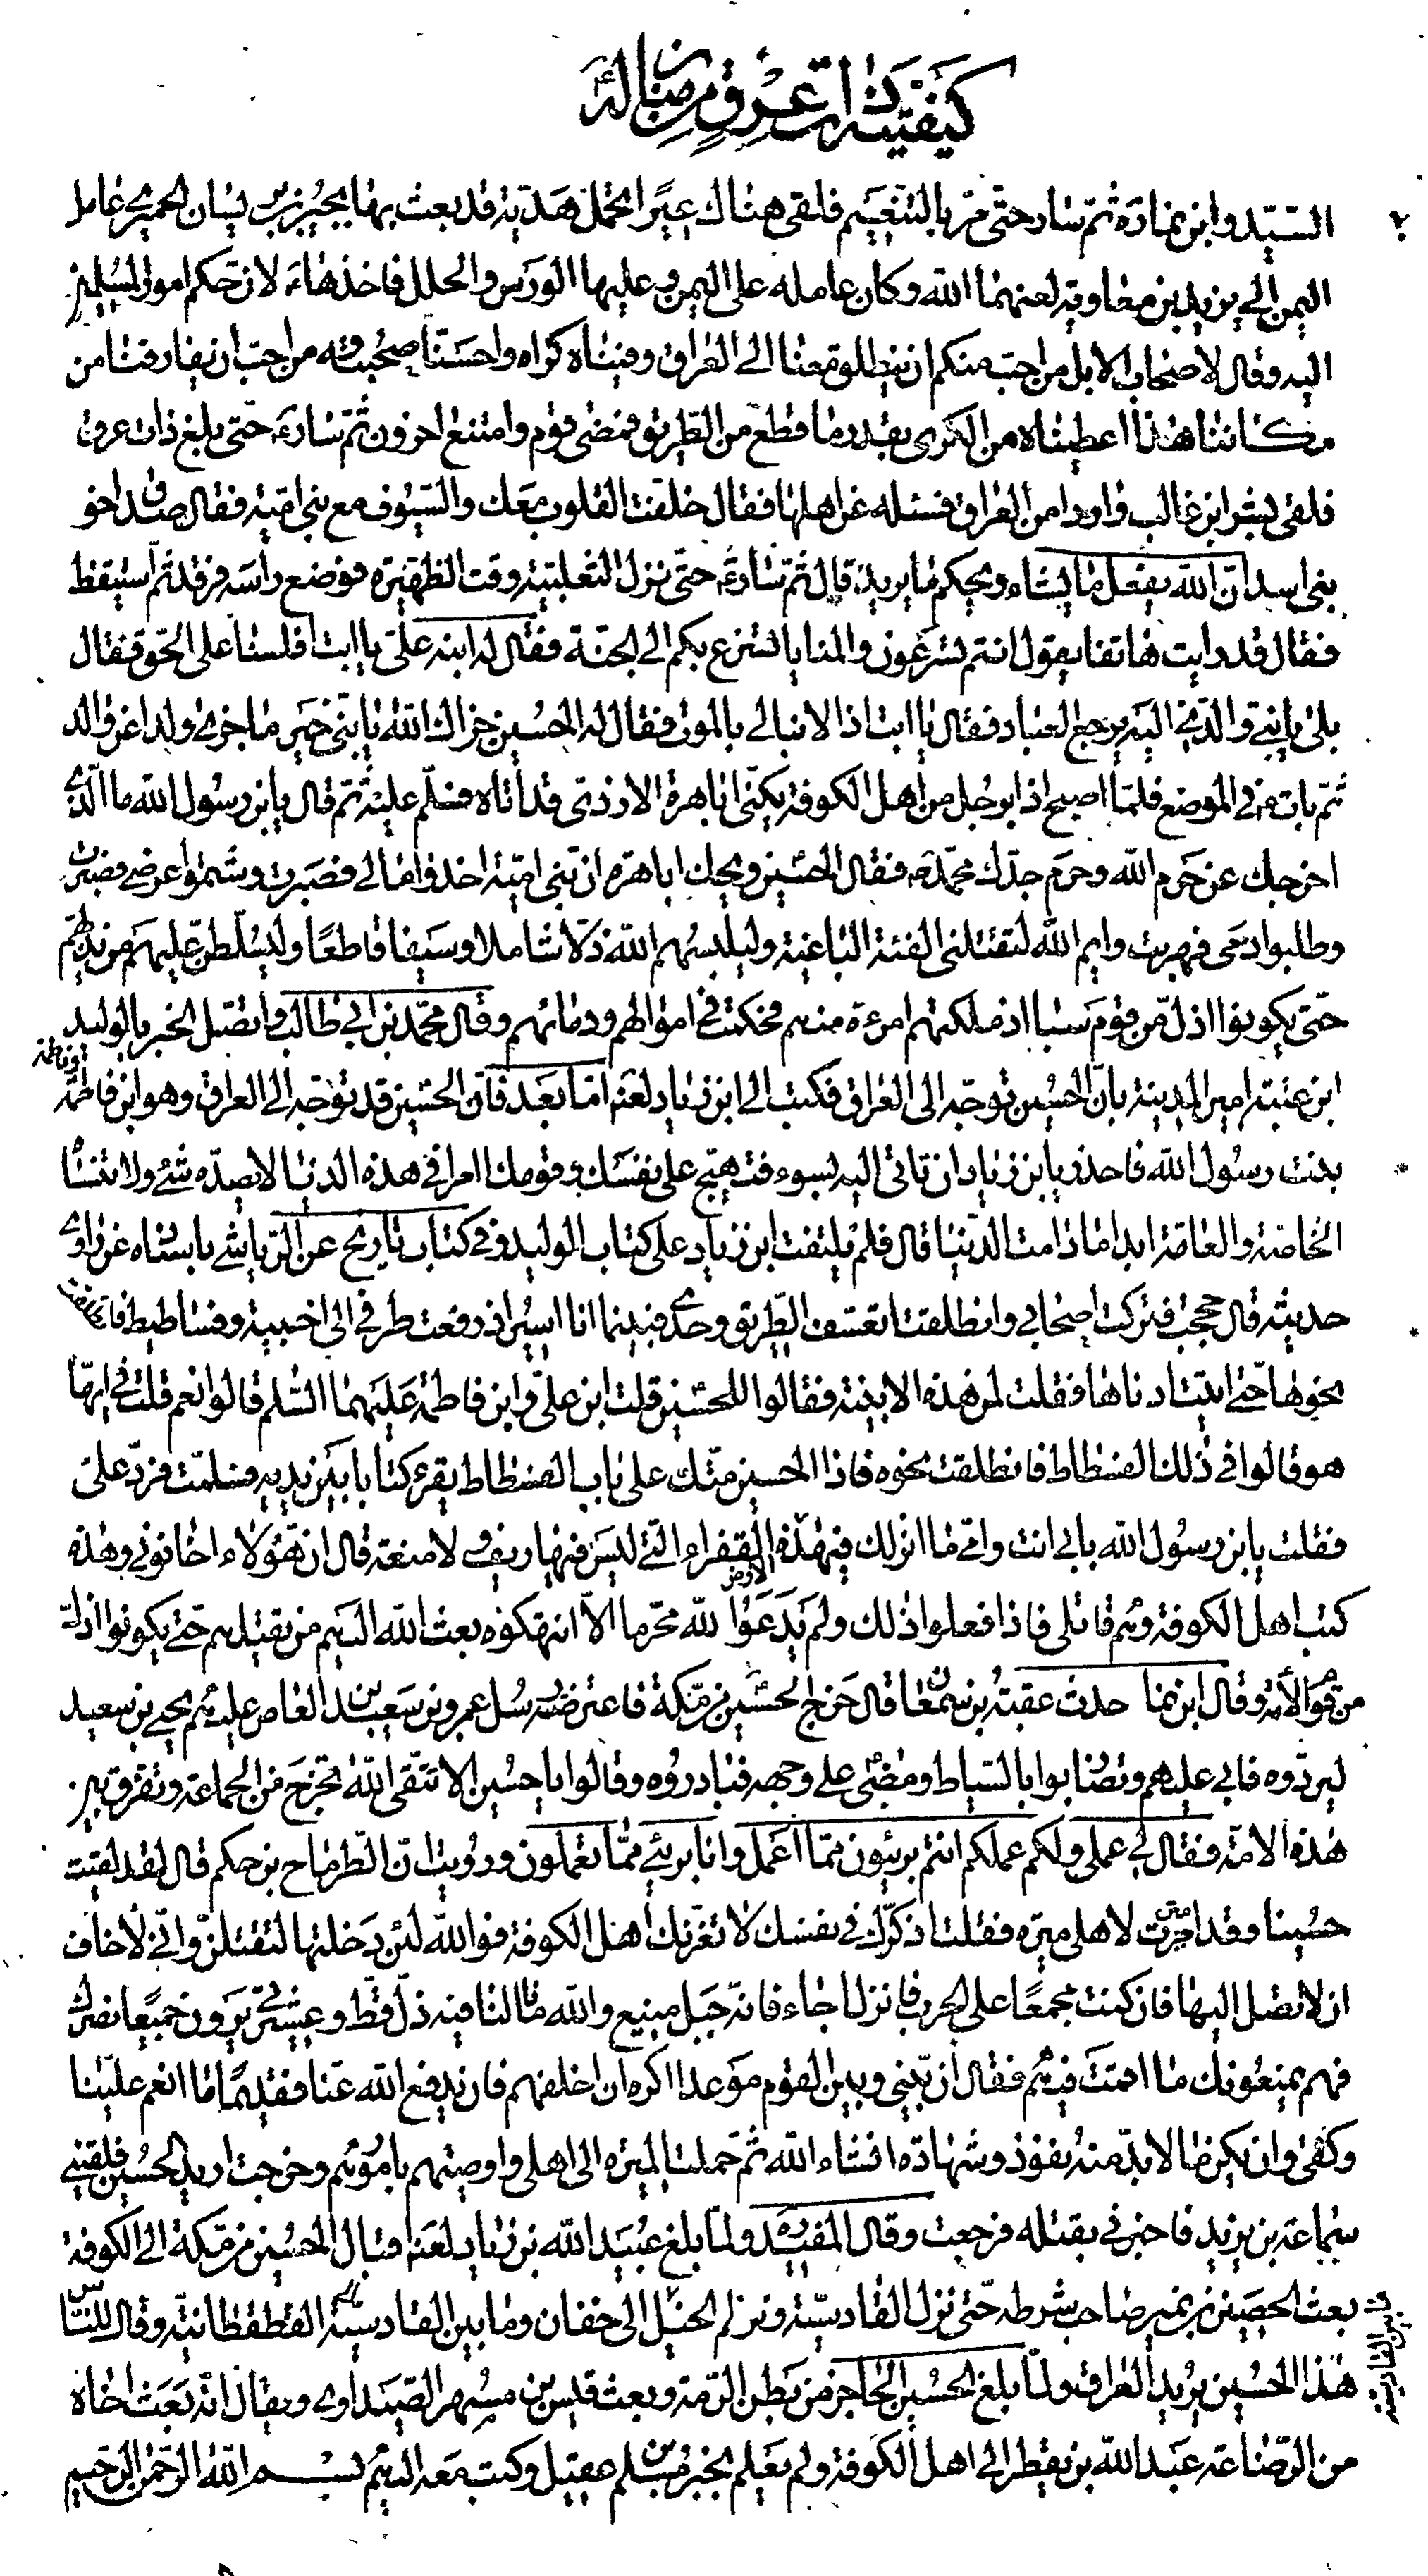 كيفيته ذات عرق من منازله
السيد وابن نما ره ثم سار حتى مر بالتنعيم فلقى هناك عيرا تحمل هدية قد بعث بها بحير بن يسان الحميرى عامل
اليمن الى يزيد بن معاويه لعنهما الله وكان عامله على اليمن وعليها الورس والحلل فاخذها ع لان حكم امور المسلمين
اليه وقال لاصحاب الابل من احب منكم ان ينطلق معنا الى العراق وفيناه كراه واحسنا صحبته ومن احب ان يفارقنا من
مكاننا هذا اعطيناه من الكرى بقدر ما قطع من الطريق فمضى قوم وامتنع اخرون ثم سار ع حتى بلغ ذات عرق
فلقى بشر ابن غالب واردا من العراق فسئله عن اهلها فقال خلقت القلوب معك والسيوف مع بنى امية فقال صدق اخو
بنى اسد ان الله يفعل ما يشاء ويحكم ما يريد قال ثم سار ع حتى نزل الثعلبية وقت الظهيرة فوضع راسه فرقد ثم استيقظ
فقال قد رايت هاتفا يقول انتم تسرعون والمنايا تسرع بكم الى الجنة فقال له ابنه على يا ابت افلسنا على الحق فقال
بلى يا بنى والذى اليه يرجع العباد فقال يا ابت اذا لا نبالى بالموت فقال له الحسين جزاك الله يا بنى خير ما جزى ولدا عن والد
ثم بات ع فى الموضع فلما اصبح اذا برجل من اهل الكوفة يكنى ابا هرة الازدى قد اتاه فسلم عليه ثم قال يا بن رسول الله ما الذى
اخرجك عن حرم الله وحرم جدك محمد ص فقال الحسين ويحك ابا هرة ان بنى امية اخذوا مالى فصبرت وشتموا عرضى فصبرت
وطلبوا دمى فهربت وايم الله لتقتلنى الفئة الباغية وليلبسهم الله ذلا شاملا وسيفا قاطعا وليسلطن عليهم من يذلهم
حتى يكونوا اذل من قوم سبا اذ ملكتهم امرءة منهم فحكمت فى اموالهم ودمائهم وقال محمد بن ابى طالب واتصل الخبر بالوليد
ابن عتبة امير المدينة بان الحسين توجه الى العراق فكتب الى ابن زياد لعنه اما بعد فان الحسين قد توجه الى العراق وهو ابن فاطمة
وفاطمة
بنت رسول الله فاحذر يا بن زياد ان تاتى اليه بسوء فتهيج على نفسك وقومك امرا فى هذه الدنيا لا يصده شئ ولا تنساه
الخاصة والعامة ابدا ما دامت الدنيا قال فلم يلتفت ابن زياد على كتاب الوليد وفى كتاب تاريخ عن الرياشى باسناده عن راوى
حديثه قال حججت فتركت اصحابى وانطلقت اتعسف الطريق وحدى فبينما انا اسير اذ رفعت طرفى الى اخبية وفساطيط فانطلقت
نحوها حتى اتيت ادناها فقلت لمن هذه الابنية فقالوا للحسين قلت ابن على وابن فاطمة عليهما السلم قالوا نعم قلت فى ايها
هو قالوا فى ذلك الفسطاط فانطلقت نحوه فاذا الحسين متك على باب الفسطاط يقرء كتابا بين يديه فسلمت فرد على
فقلت يا بن رسول الله بابى انت وامى ما انزلك فى هذه القفراء التى ليس فيها ريف ولا منعة قال ان هؤلاء اخافونى وهذه
الارض
كتب اهل الكوفة وهم قاتلى فاذا فعلوا ذلك ولم يدعوا لله محرما الا انتهكوه بعث الله اليهم من يقتلهم حتى يكونوا اذل
من قوم الامة وقال ابن نما حدث عقبة بن سمعان قال خرج الحسين من مكة فاعترضته رسل عمرو بن سعيد بن العاص عليهم يحيى بن سعيد
ليردوه فابى عليهم وتضاربوا بالسياط ومضى على وجهه فبادروه وقالوا يا حسين الا تتقى الله تخرج من الجماعة وتفرق بين
هذه الامة فقال لى عملى ولكم عملكم انتم بريئون مما اعمل وانا بريئ مما تعملون ورويت ان الطرماح بن حكم قال لقد لقيت
حسينا وقد امترت لاهلى ميرة فقلت اذكرك فى نفسك لا تغرنك اهل الكوفة فوالله لئن دخلتها لتقتلن وانى لاخاف
ان لا تصل اليها فان كنت مجمعا على الحرب فانزل اجاء فانه جبل منيع والله ما نالنا فيه ذل قط وعشيرتى يرون جميعا نصرك
فهم يمنعونك ما اقمت فيهم فقال ان بينى وبين القوم موعدا اكره ان اخلفهم فان يدفع الله عنا فقديما ما انعم علينا
وكفى وان يكن ما لا بد منه ففوز وشهادة انشاء الله ثم حملت الميرة الى اهلى واوصيتهم بامورهم وخرجت اريد الحسين فلقينى
سماعة بن يزيد فاخبرنى بقتله فرجعت وقال المفيد ره ولما بلغ عبيد الله بن زياد لعنه اقبال الحسين من مكة الى الكوفة
بعث الحصين بن نمير صاحب شرطه حتى نزل القادسية ونزلم الخيل الى خفان وما بين القادسية الى القطقطانية وقال للناس
ما بين القادسية
هذا الحسين يريد العراق ولما بلغ الحسين الحاجز من بطن الرمة وبعث قيس بن مسهر الصيداوى ويقال انه بعث اخاه
من الرضاعة عبد الله بن يقطر الى اهل الكوفة ولم يعلم بخبر مسلم بن عقيل وكتب معه اليهم بسم الله الرحمن الرحيم